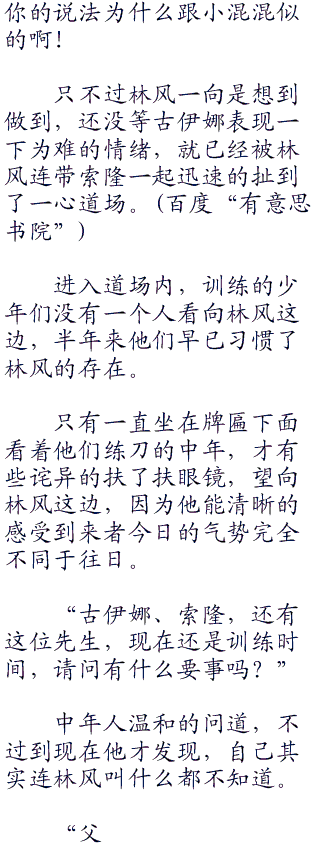 你的说法为什么跟小混混似
的啊！
只不过林风一向是想到
做到，还没等古伊娜表现一
下为难的情绪，就已经被林
风连带索隆一起迅速的扯到
了一心道场。（百度“有意思
书院”）
进入道场内，训练的少
年们没有一个人看向林风这
边，半年来他们早已习惯了
林风的存在。
只有一直坐在牌匾下面
看着他们练刀的中年，才有
些诧异的扶了扶眼镜，望向
林风这边，因为他能清晰的
感受到来者今日的气势完全
不同于往日。
“古伊娜、索隆，还有
这位先生，现在还是训练时
间，请问有什么要事吗？”
中年人温和的问道，不
过到现在他才发现，自己其
实连林风叫什么都不知道。
“父